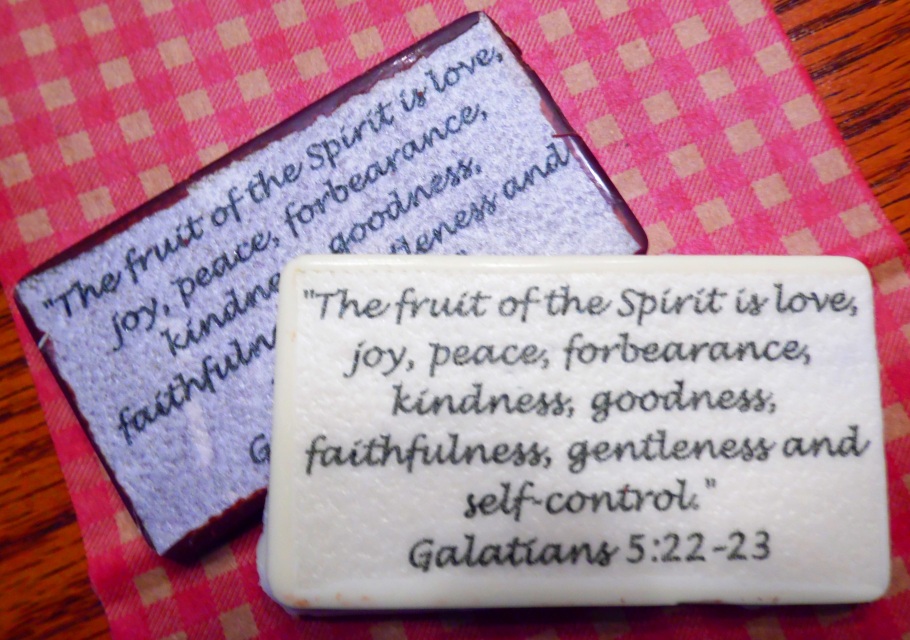 "The fruit of the Spirit is love,
joy, peace, forbearance,
kindne
goodness,
faithfuln
leness and
G
"The fruit of the Spirit is love,
joy, peace, forbearance,
kindness, goodness,
faithfulness, gentleness and
self-control."
Galatians 5:22-23